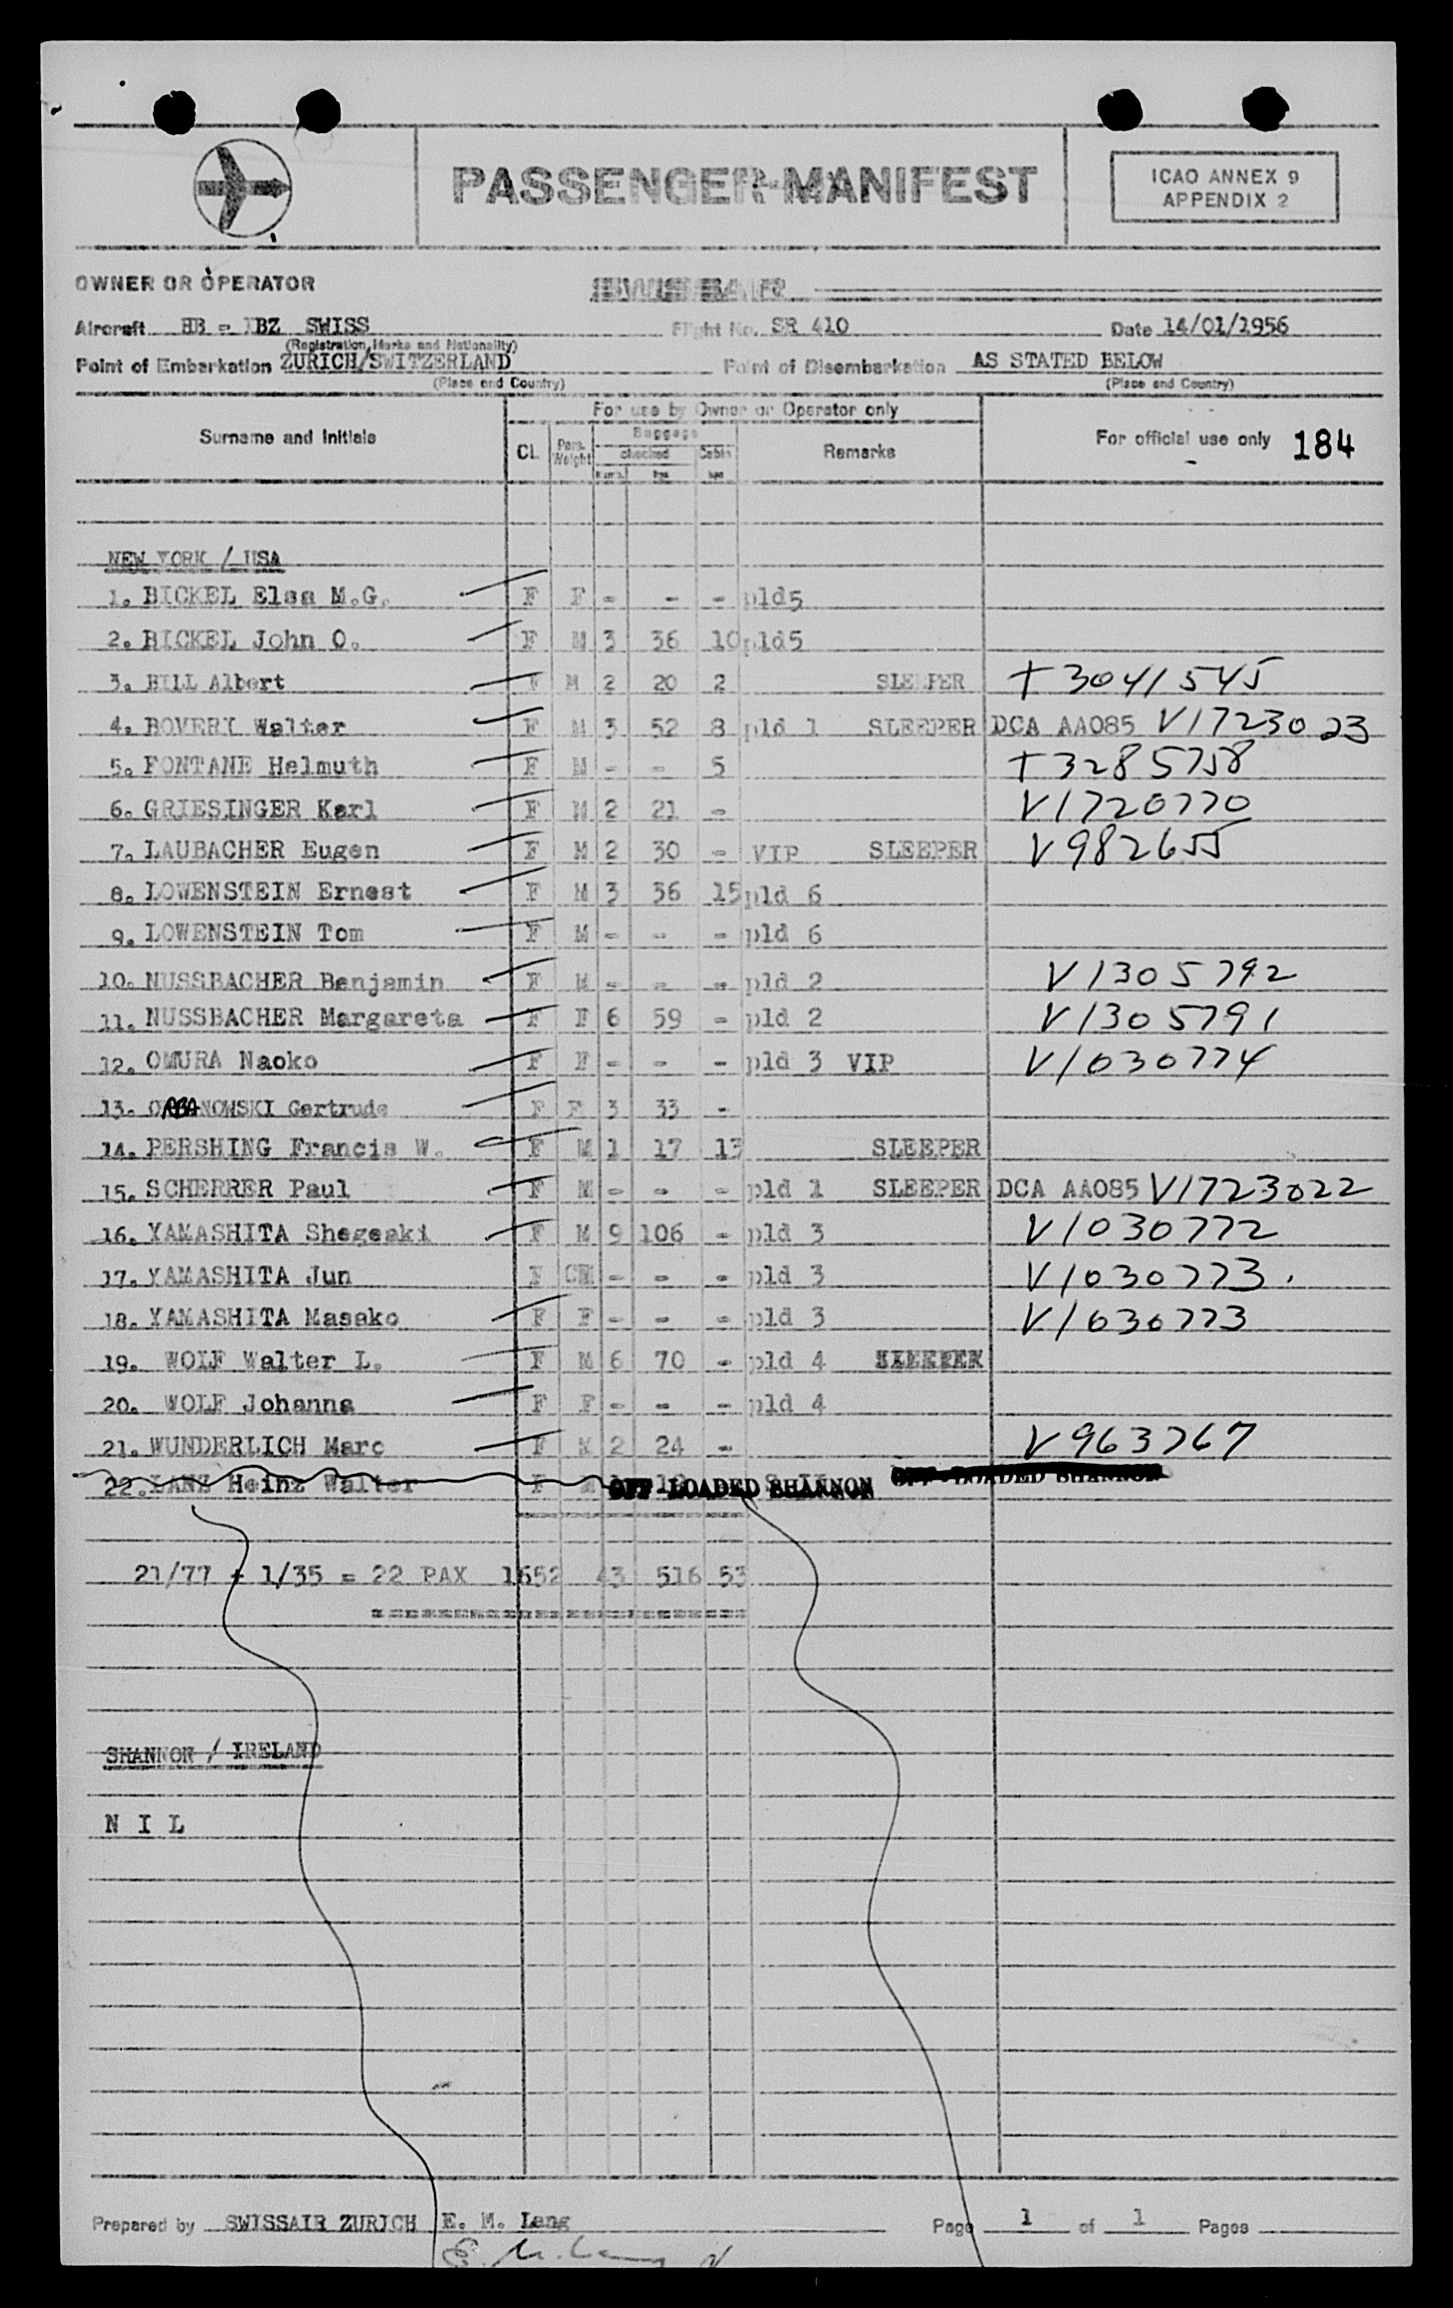 PASSENGER-MANIFEST
ICAO ANNEX 9
APPENDIX 2
OWNER OR OPERATOR SWISSAIR
Aircraft HB - IBZ SWISS Flight No. SR 410 Date 14/01/1956
(Registration Marks and Nationality)
Point of Embarkation ZURICH/SWITZERLAND Point of Disembarkation AS STATED BELOW
(Place and Country) (Place and Country)
For use by Owner or Operator only
Surname and Initials Cl. Pers. Weight Baggage checked Cabin Remarks For official use only 184
NEW YORK / USA
1. BICKEL Elsa M.G. F F - - - pld5
2. BICKEL John O. F M 3 36 10 pld5
3. BILL Albert F M 2 20 2 SLEEPER T3041545
4. BOVERI Walter F M 3 52 8 pld 1 SLEEPER DCA AA085 V1723023
5. FONTANE Helmuth F M - - 5 T3285758
6. GRIESINGER Karl F M 2 21 - V1720770
7. LAUBACHER Eugen F M 2 30 - VIP SLEEPER V982655
8. LOWENSTEIN Ernest F M 3 36 15 pld 6
9. LOWENSTEIN Tom F M - - - pld 6
10. NUSSBACHER Benjamin F M - - - pld 2 V1305792
11. NUSSBACHER Margareta F F 6 59 - pld 2 V1305791
12. OMURA Naoko F F - - - pld 3 VIP V1030774
13. ORBANOWSKI Gertrude F F 3 33 -
14. PERSHING Francis W. F M 1 17 13 SLEEPER
15. SCHERRER Paul F M - - - pld 1 SLEEPER DCA AA085 V1723022
16. YAMASHITA Shegeaki F M 9 106 - pld 3 V1030772
17. YAMASHITA Jun F CH - - - pld 3 V1030773.
18. YAMASHITA Masako F F - - - pld 3 V1030773
19. WOLF Walter L. F M 6 70 - pld 4 SLEEPER
20. WOLF Johanna F F - - - pld 4
21. WUNDERLICH Marc F M 2 24 - V963767
22. LANZ Heinz Walter F OFF-LOADED SHANNON OFF-LOADED SHANNON
21/77 + 1/35 = 22 PAX 1652 43 516 53
SHANNON / IRELAND
N I L
Prepared by SWISSAIR ZURICH E. M. Lang Page 1 of 1 Pages
E. M. Lang